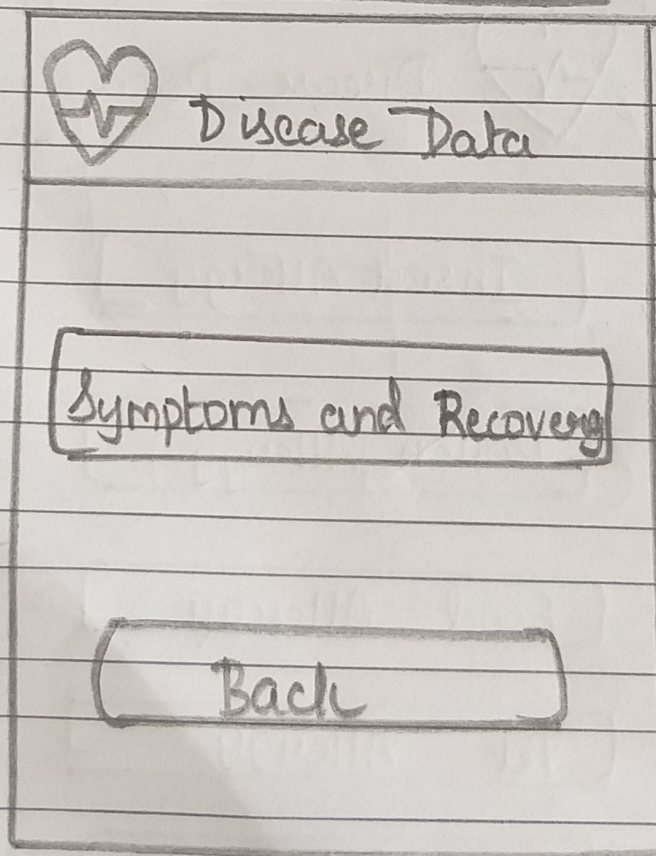 Disease Data
Symptoms and Recovery
Back